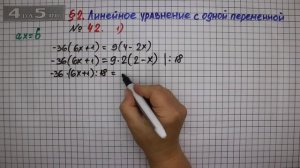 4 на 5.ru
§2. Линейное уравнение с одной переменной
ax=b
№ 42. 1)
-36(6x+1) = 9(4-2x)
-36(6x+1) = 9·2(2-x) |:18
-36·(6x+1):18 =